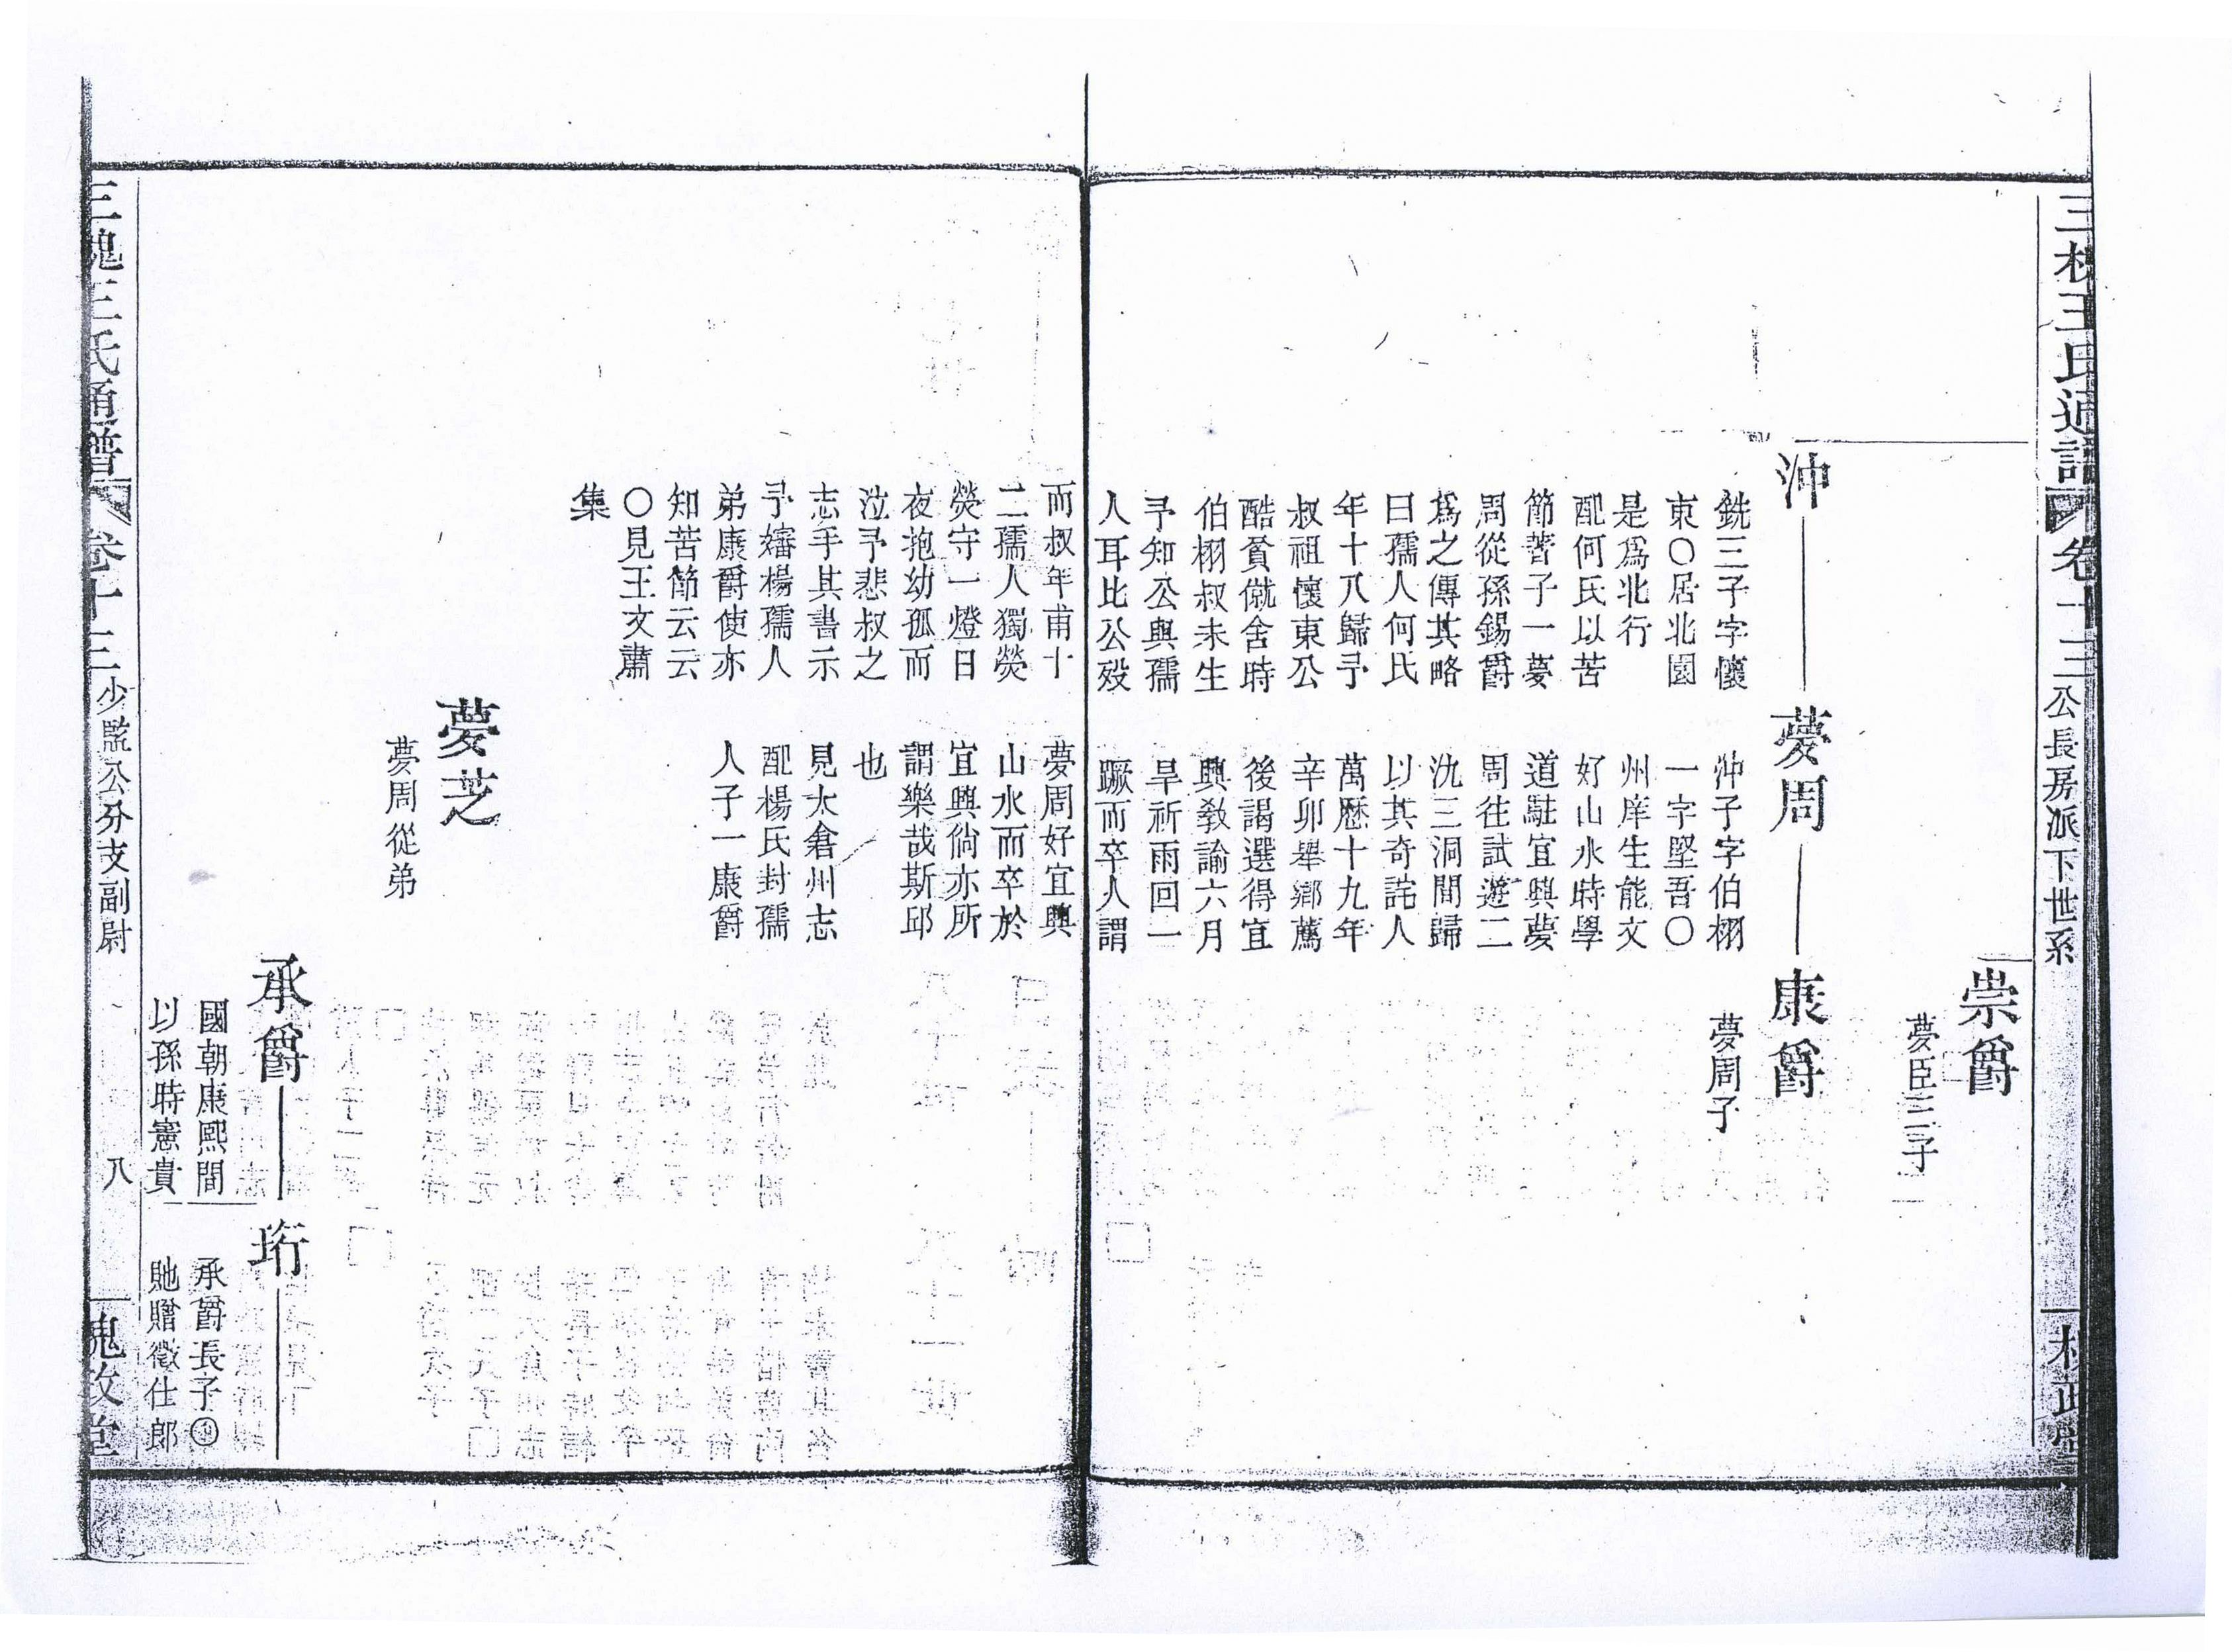 三槐王氏通譜
卷十三
公長房派下世系
槐政堂
崇爵
夢臣三子
沖
夢周
康爵
銑三子字懷
東〇居北園
是爲北行
配何氏以苦
節著子一夢
周從孫錫爵
爲之傳其略
曰孺人何氏
年十八歸予
叔祖懷東公
酷貧僦舍時
伯栩叔未生
予知公與孺
人耳比公歿
沖子字伯栩
一字堅吾〇
州庠生能文
好山水時學
道駐宜興夢
周往試遊二
氿三洞間歸
以其奇詫人
萬曆十九年
辛卯舉鄉薦
後謁選得宜
興教諭六月
旱祈雨回一
蹶而卒人謂
夢周子
而叔年甫十
二孺人獨熒
熒守一燈日
夜抱幼孤而
泣予悲叔之
志手其書示
予嬸楊孺人
弟康爵使亦
知苦節云云
〇見王文肅
集
夢周好宜興
山水而卒於
宜興倘亦所
謂樂哉斯邱
也
見太倉州志
配楊氏封孺
人子一康爵
夢芝
夢周從弟
承爵
珩
國朝康熙間
以孫時憲貴
承爵長子
貤贈徵仕郎
三槐王氏通譜
卷十三
少監公分支副尉
八
槐政堂